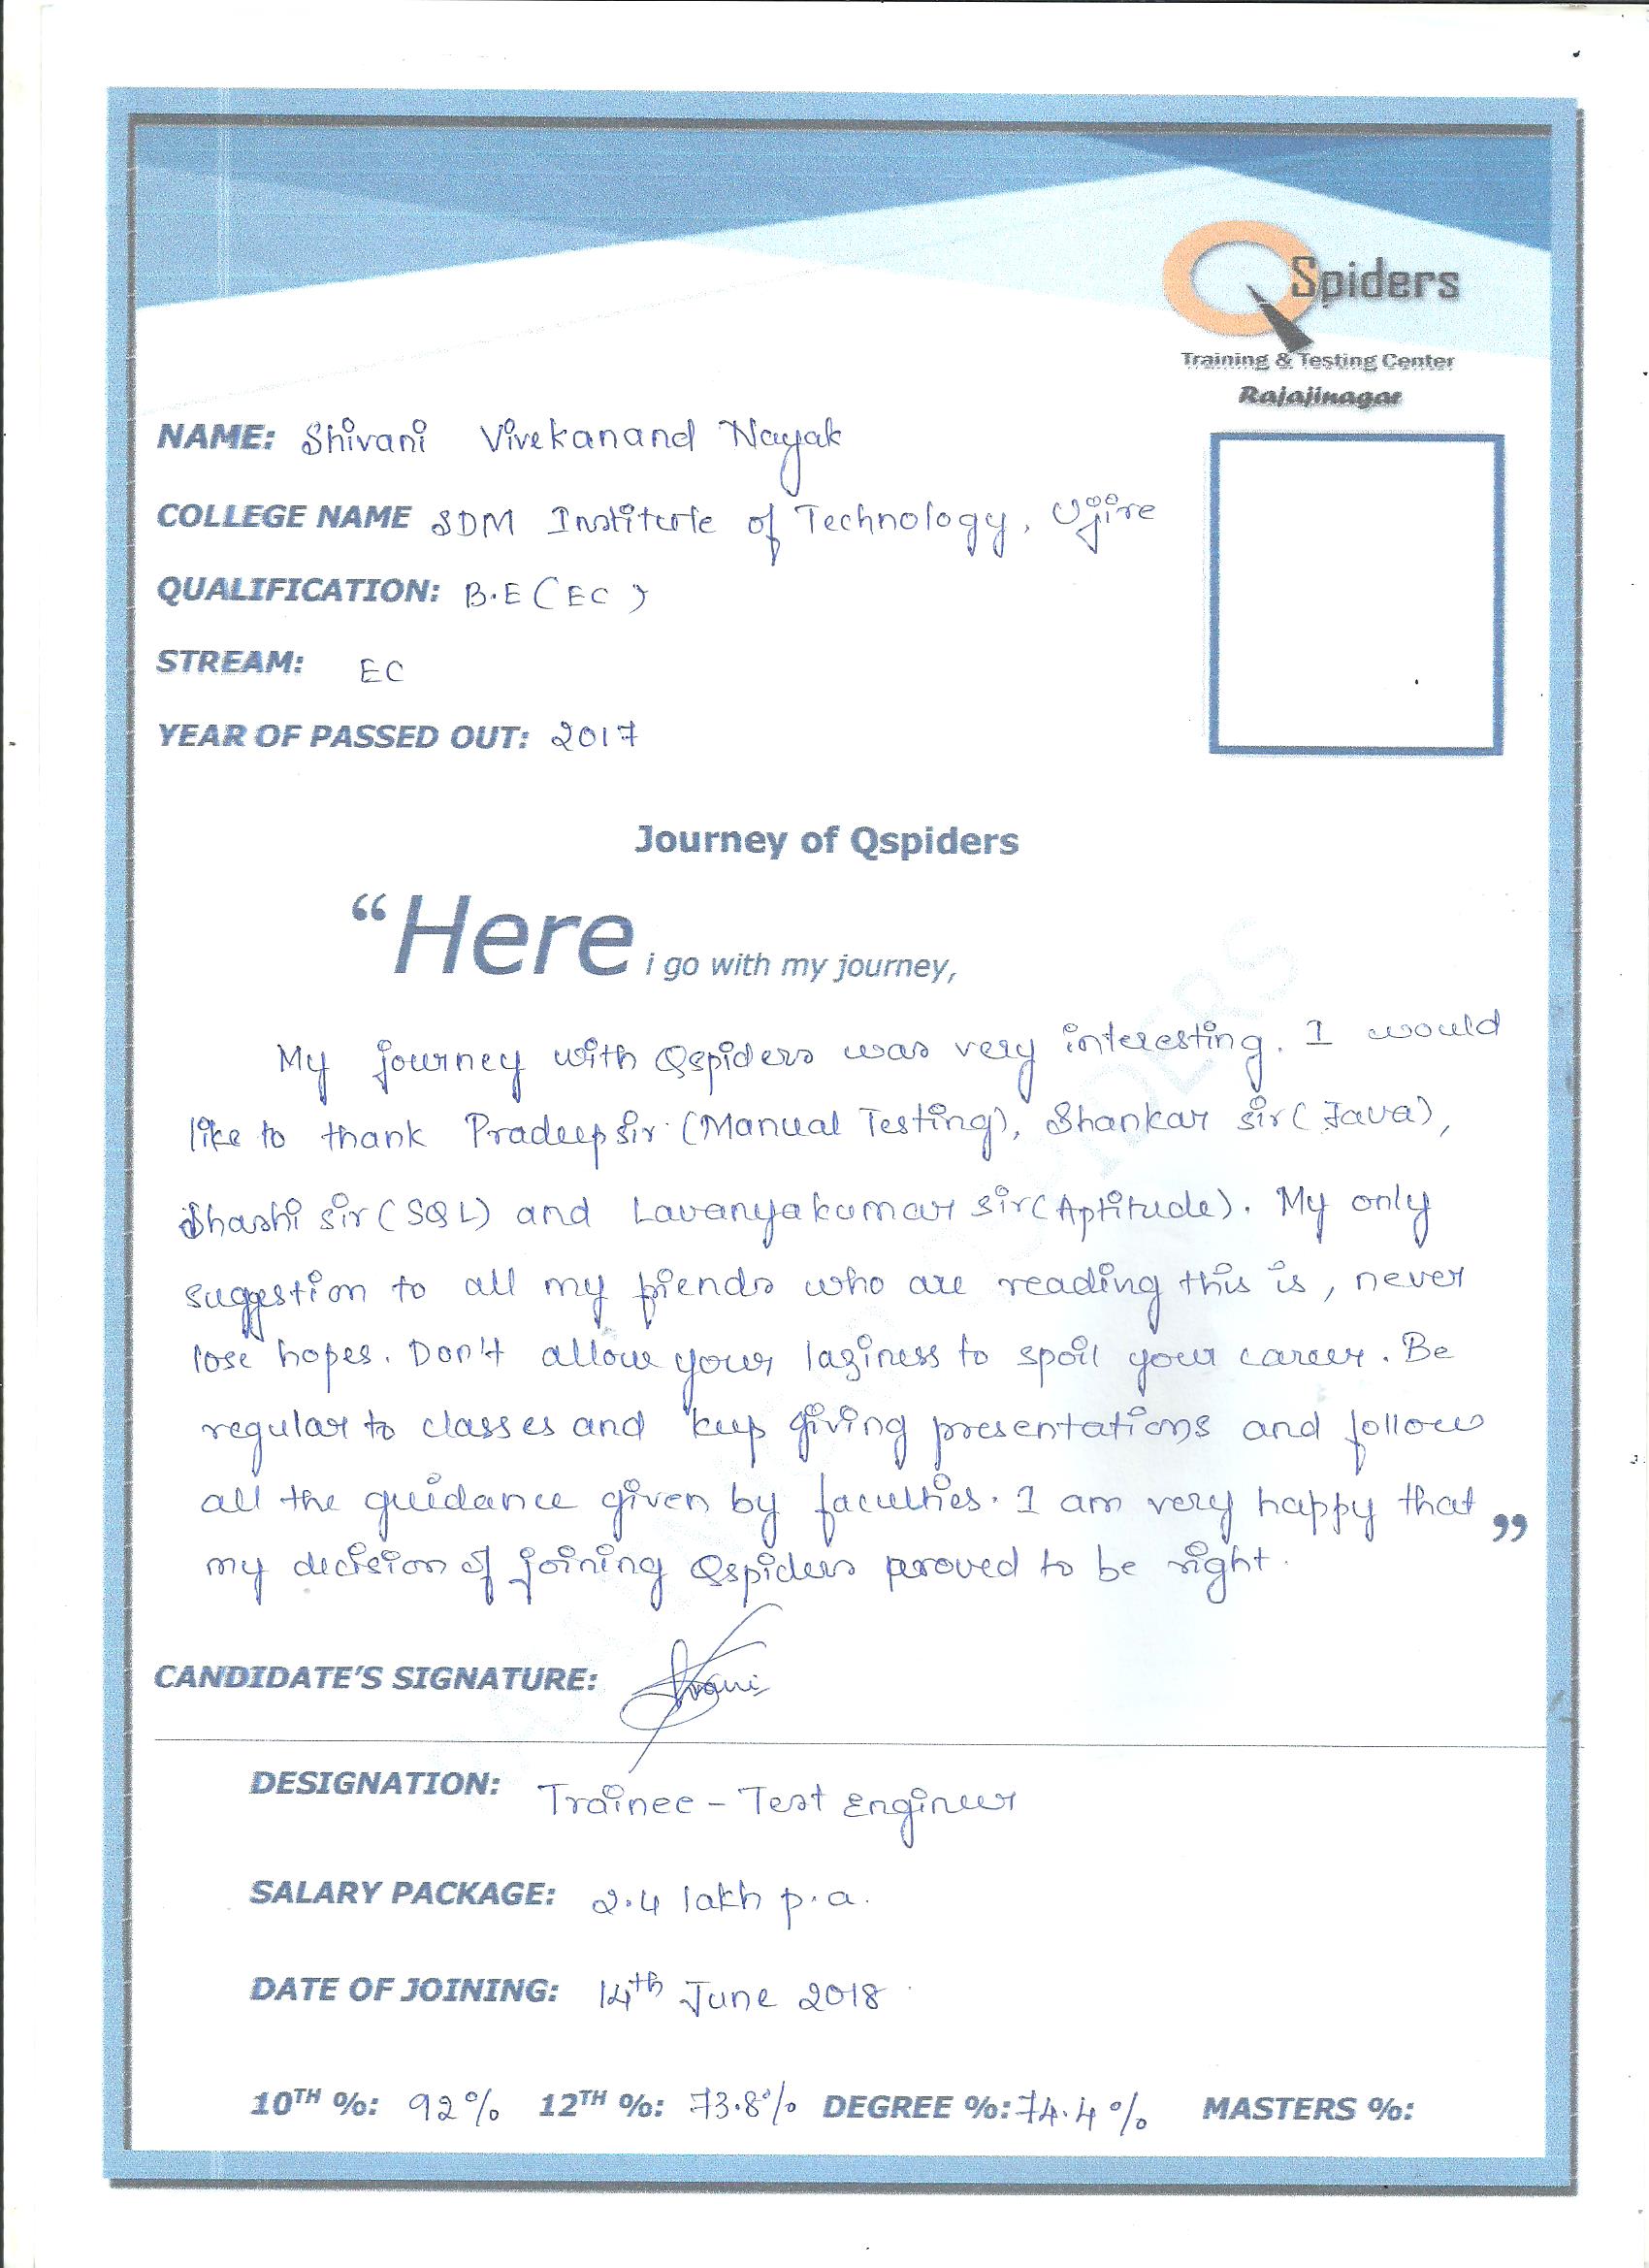 QSpiders
Training & Testing Center
Rajajinagar
NAME: Shivani Vivekanand Nayak
COLLEGE NAME SDM Institute of Technology, Ujire
QUALIFICATION: B.E (EC)
STREAM: EC
YEAR OF PASSED OUT: 2017
Journey of Qspiders
“Here i go with my journey,
My journey with Qspiders was very interesting. I would
like to thank Pradeep sir (Manual Testing), Shankar sir (Java),
Shashi sir (SQL) and Lavanyakumar sir (Aptitude). My only
suggestion to all my friends who are reading this is, never
lose hopes. Don't allow your laziness to spoil your career. Be
regular to classes and keep giving presentations and follow
all the guidance given by faculties. I am very happy that ”
my decision of joining Qspiders proved to be right.
CANDIDATE’S SIGNATURE:
DESIGNATION: Trainee - Test Engineer
SALARY PACKAGE: 2.4 lakh p.a.
DATE OF JOINING: 14th June 2018
10TH %: 92% 12TH %: 73.8% DEGREE %: 74.4% MASTERS %: